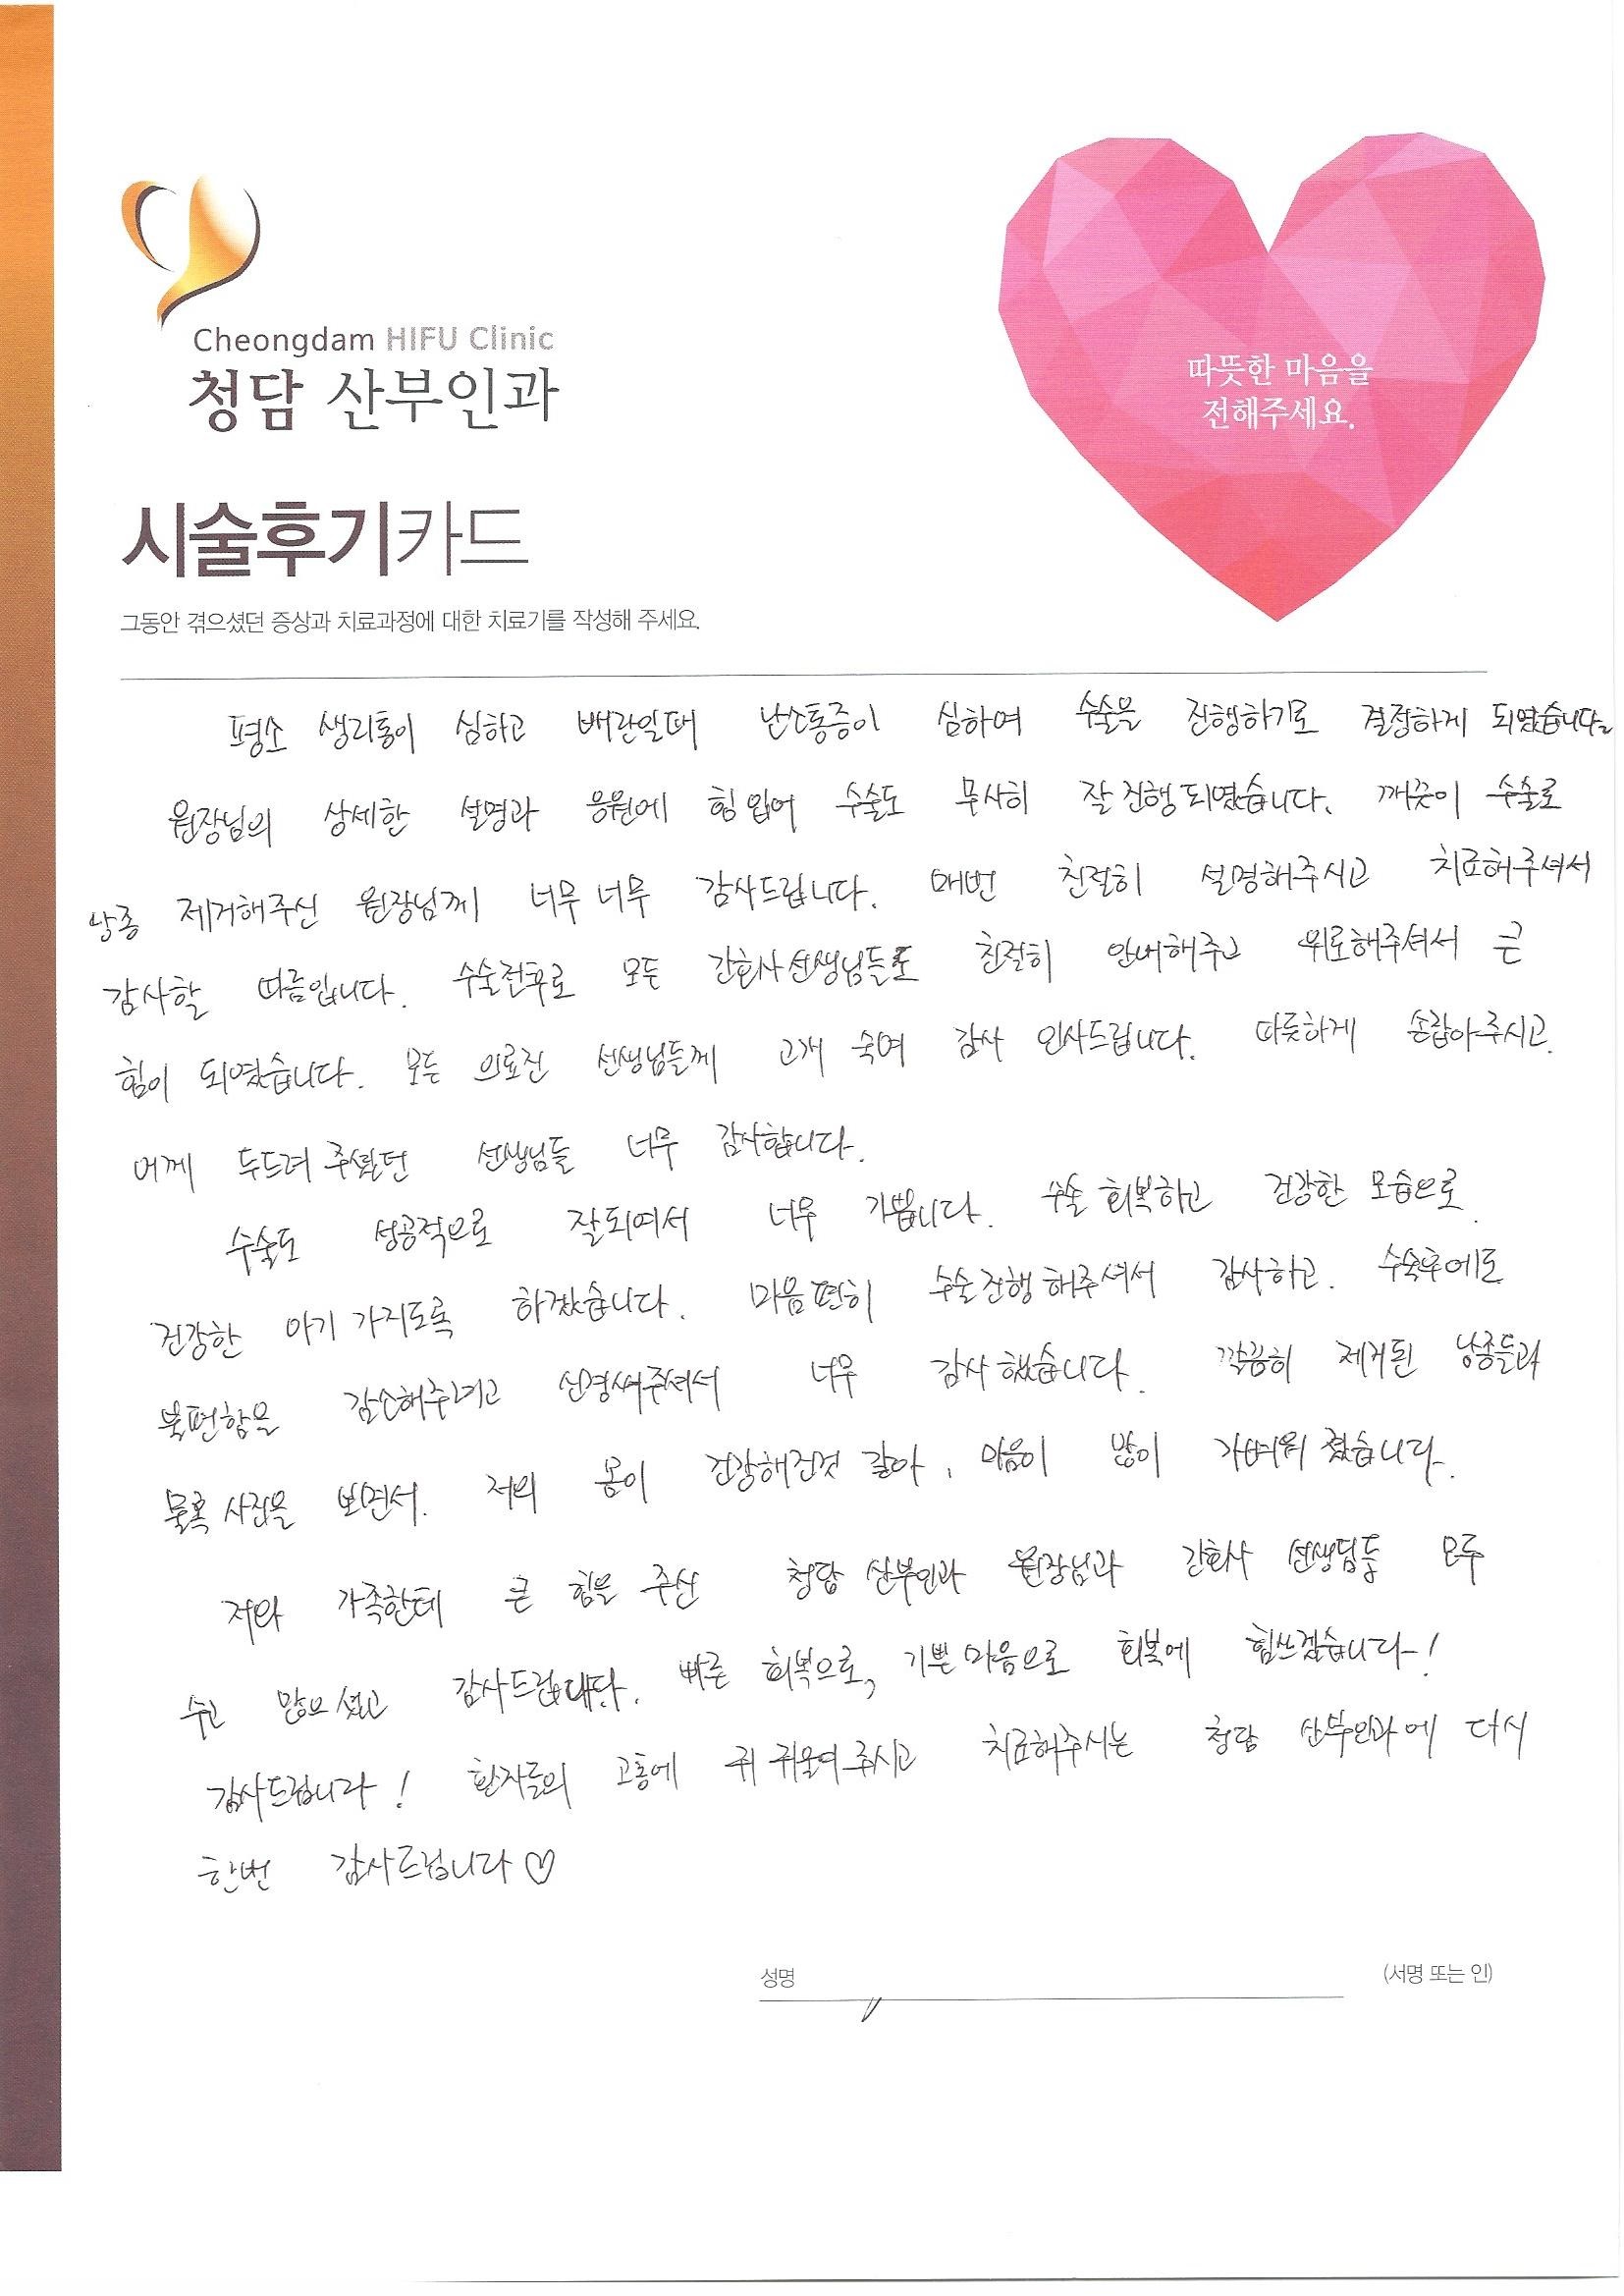 Cheongdam HIFU Clinic
청담 산부인과
따뜻한 마음을
전해주세요.
시술후기카드
그동안 겪으셨던 증상과 치료과정에 대한 치료기를 작성해 주세요.
평소 생리통이 심하고 배란일때 난소통증이 심하여 수술을 진행하기로 결정하게 되였습니다.
원장님의 상세한 설명과 응원에 힘입어 수술도 무사히 잘 진행되였습니다. 깨끗이 수술로
낭종 제거해주신 원장님께 너무 너무 감사드립니다. 매번 친절히 설명해주시고 치료해주셔서
감사할 따름입니다. 수술전후로 모든 간호사선생님들도 친절히 안내해주고 위로해주셔서 큰
힘이 되였습니다. 모든 의료진 선생님들께 고개 숙여 감사 인사드립니다. 따뜻하게 손잡아주시고.
어께 두드려 주셨던 선생님들 너무 감사합니다.
수술도 성공적으로 잘되여서 너무 기쁩니다. 수술 회복하고 건강한 모습으로.
건강한 아기 가지도록 하겠습니다. 마음편히 수술진행해주셔서 감사하고. 수술후에도
불편함을 감소해주려고 신경써주셔서 너무 감사했습니다. 깔끔히 제거된 낭종들과
물혹 사진을 보면서. 저의 몸이 건강해진것 같아, 마음이 많이 가벼워 졌습니다.
저와 가족한테 큰 힘을 주신 청담 산부인과 원장님과 간호사 선생님들 모두
수고 많으셨고 감사드립니다. 빠른 회복으로, 기쁜마음으로 회복에 힘쓰겠습니다!
감사드립니다! 환자들의 고통에 귀 귀울여주시고 치료해주시는 청담 산부인과에 다시
한번 감사드립니다♡
성명
(서명 또는 인)